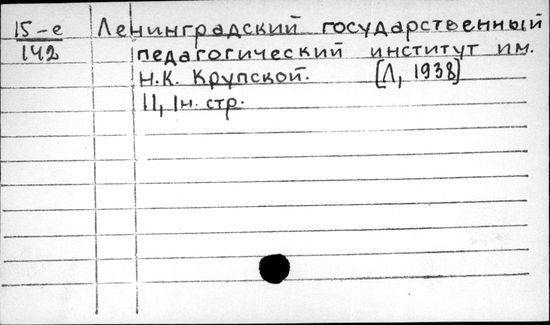 15-е Ленинградский государственный
142 педагогический институт им.
Н.К. Крупской. [Л, 1938]
11, 1н. стр.